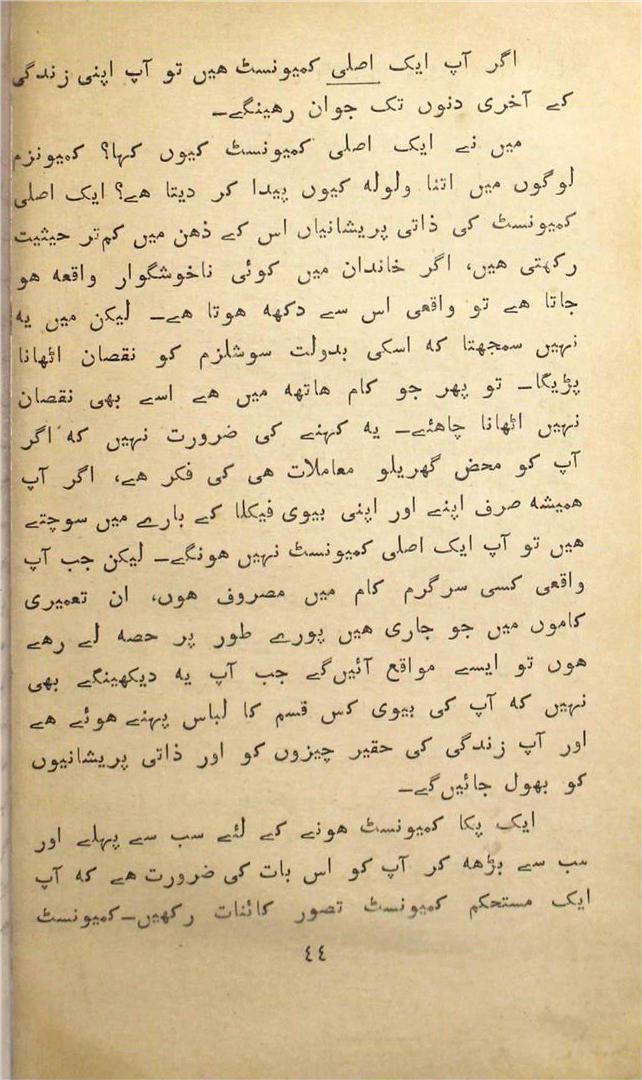 اگر آپ ایک اصلی کمیونسٹ هیں تو آپ اپنی زندگی
کے آخری دنوں تک جوان رهینگے۔
میں نے ایک اصلی کمیونسٹ کیوں کہا؟ کمیونزم
لوگوں میں اتنا ولوله کیوں پیدا کر دیتا هے؟ ایک اصلی
کمیونسٹ کی ذاتی پریشانیاں اس کے ذهن میں کم‌تر حیثیت
رکھتی هیں، اگر خاندان میں کوئی ناخوشگوار واقعه هو
جاتا هے تو واقعی اس سے دکھه هوتا هے۔ لیکن میں یه
نہیں سمجھتا که اسکی بدولت سوشلزم کو نقصان اٹھانا
پڑیگا۔ تو پھر جو کام هاتھه میں هے اسے بھی نقصان
نہیں اٹھانا چاهئے۔ یه کہنے کی ضرورت نہیں که اگر
آپ کو محض گھریلو معاملات هی کی فکر هے، اگر آپ
همیشه صرف اپنے اور اپنی بیوی فیکلا کے بارے میں سوچتے
هیں تو آپ ایک اصلی کمیونسٹ نہیں هونگے۔ لیکن جب آپ
واقعی کسی سرگرم کام میں مصروف هوں، ان تعمیری
کاموں میں جو جاری هیں پورے طور پر حصه لے رهے
هوں تو ایسے مواقع آئیں‌گے جب آپ یه دیکھینگے بھی
نہیں که آپ کی بیوی کس قسم کا لباس پہنے هوئے هے
اور آپ زندگی کی حقیر چیزوں کو اور ذاتی پریشانیوں
کو بھول جائیں‌گے۔
ایک پکا کمیونسٹ هونے کے لئے سب سے پہلے اور
سب سے بڑھه کر آپ کو اس بات کی ضرورت هے که آپ
ایک مستحکم کمیونسٹ تصور کائنات رکھیں۔ کمیونسٹ
٤٤